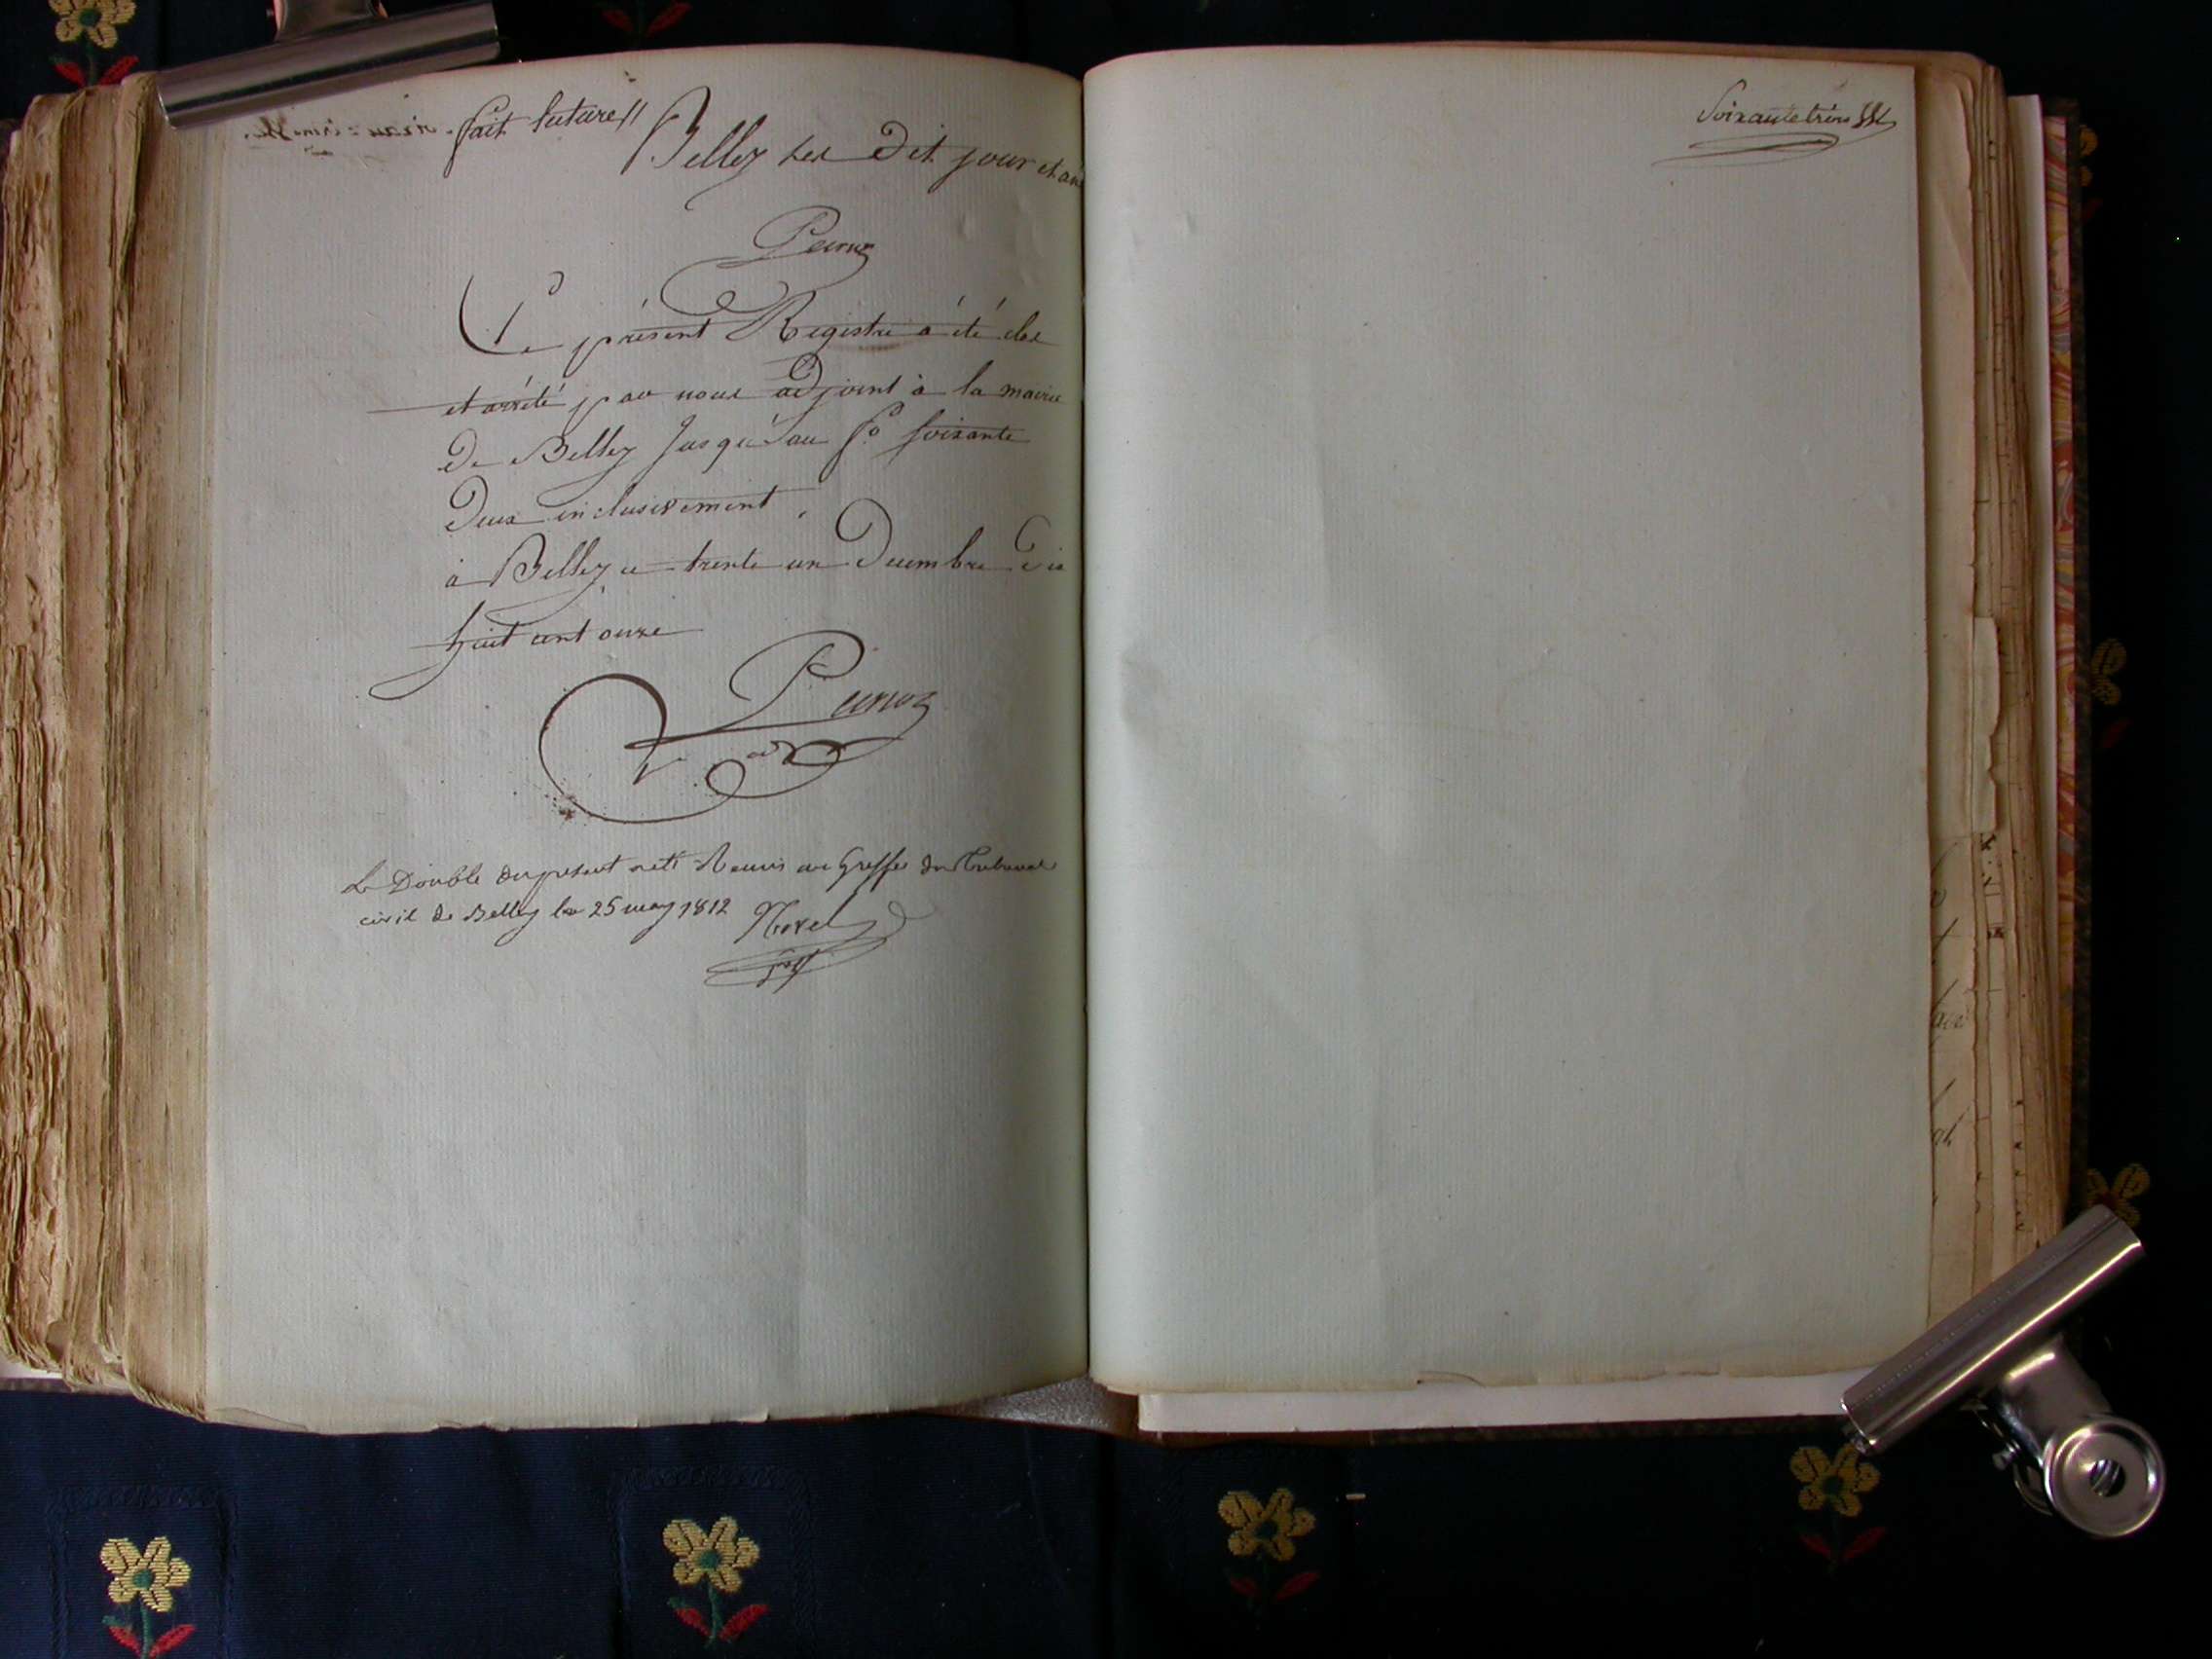 fait lecture //
Belley les dit jour et an
Le présent Registre a été clos
et arrêté par nous adjoint à la mairie
De Belley Jusqu'au f.o soixante
Deux inclusivement,
à Belley ce trente un Decembre Dix
huit cent onze
Le Double du present a eté Remis au Greffe du Tribunal
civil de Belley le 25 may 1812
Soixante trois